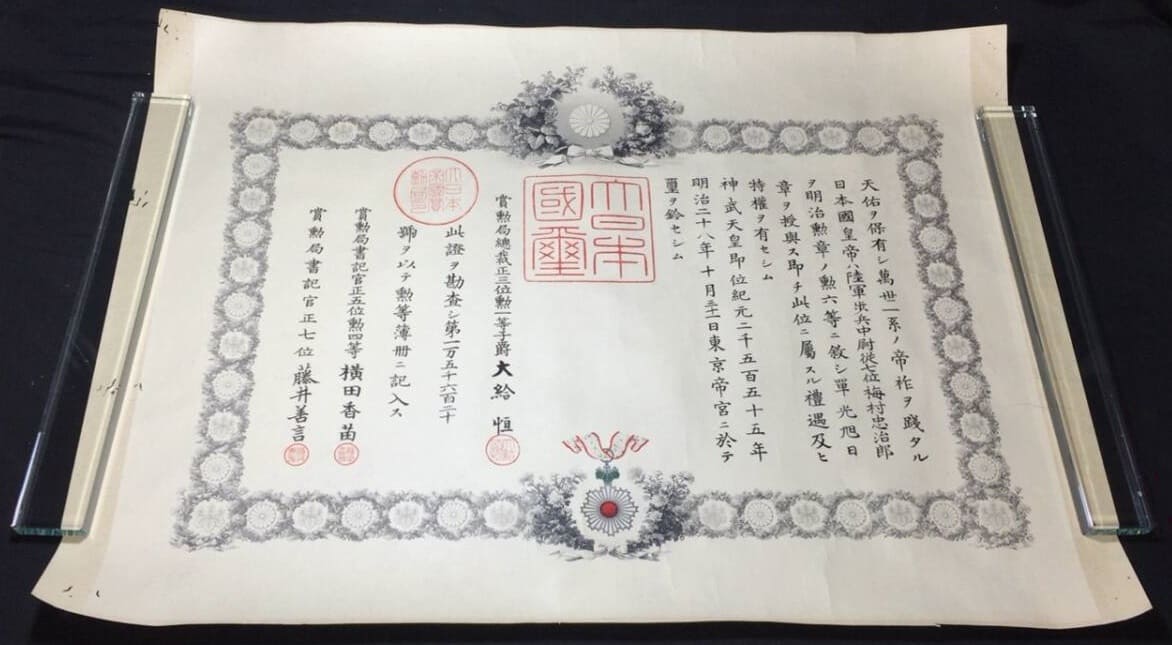 天佑ヲ保有シ萬世一系ノ帝祚ヲ踐タル
日本國皇帝ハ陸軍歩兵中尉從七位梅村忠治郎
ヲ明治勲章ノ勲六等ニ敘シ單光旭日
章ヲ授與ス即チ此位ニ屬スル禮遇及ヒ
特權ヲ有セシム
神武天皇即位紀元二千五百五十五年
明治二十八年十月三十一日東京帝宮ニ於テ
璽ヲ鈐セシム
大日本
國璽
賞勲局總裁正三位勲一等子爵大給恒
此證ヲ勘査シ第一万五千六百二十
號ヲ以テ勲等簿冊ニ記入ス
賞勲局書記官正五位勲四等横田香苗
賞勲局書記官正七位藤井善言